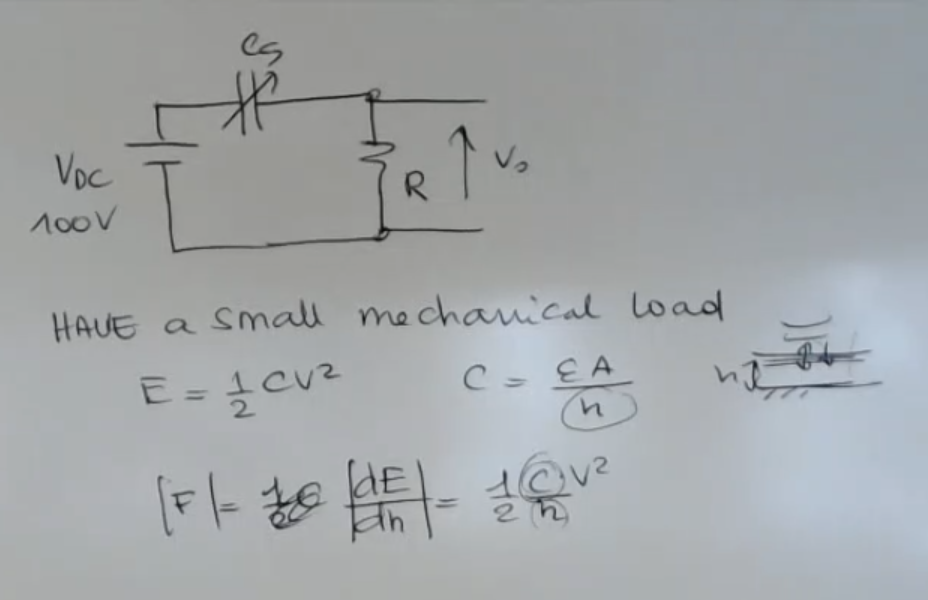 Cs
VDC
100V
R
Vo
HAVE a small mechanical load
E = 1/2 CV²
C = εA/h
h
|F| = |dE/dh| = 1/2 C/h V²